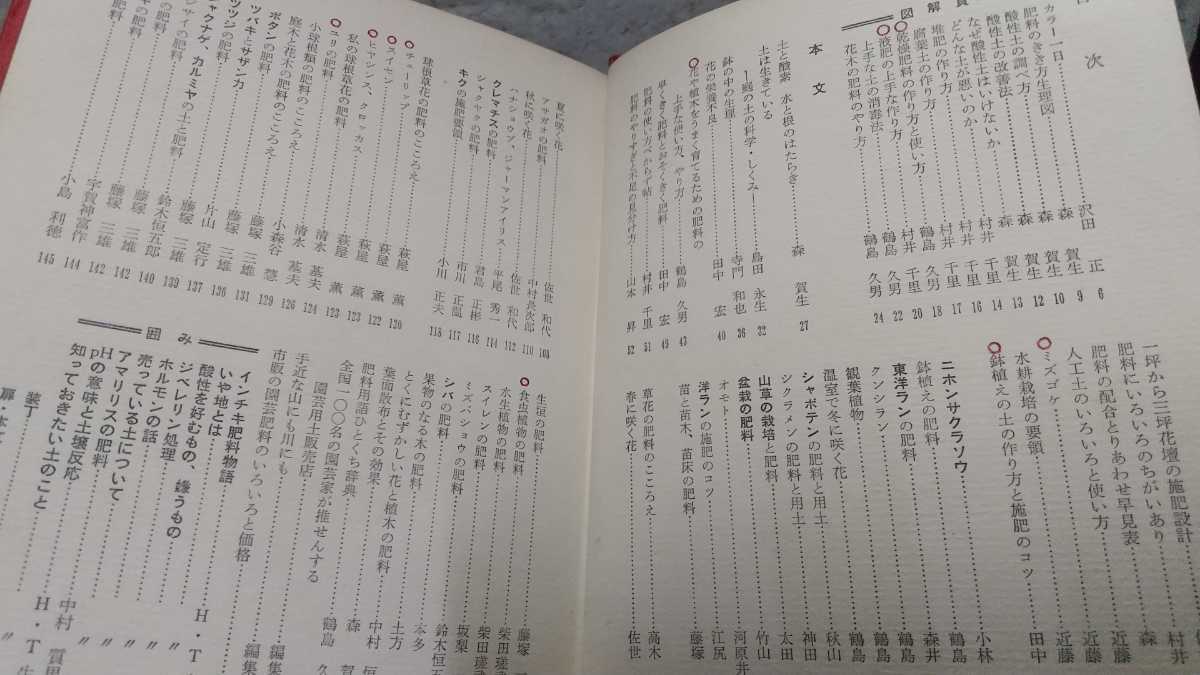 目次
カラー口
肥料のきき方生理図……沢田 正 6
酸性土の調べ方……森 賀生 9
酸性土の改善法……森 賀生 10
なぜ酸性土はいけないか……森 賀生 12
どんな土が悪いのか……森 賀生 13
堆肥の作り方……村井 千里 14
腐葉土の作り方……村井 千里 16
乾燥肥料の作り方と使い方……鶴島 久男 18
液肥の上手な作り方……村井 千里 20
上手な土の消毒法……鶴島 久男 22
花木の肥料のやり方……鶴島 久男 24
図解
本文
土と酸素 水と根のはたらき……森 賀生 27
土は生きている
―庭の土の科学・しくみ―……島田 永生 32
鉢の中の生理……寺門 和也 36
花の栄養不足……田中 宏 40
花や植木をうまく育てるための肥料の
上手な使い方、やり方……鶴島 久男 43
早くきく肥料とおそくきく肥料……田中 宏 49
肥料の使い方べからず帖……村井 千里 51
肥料のやりすぎと不足の見分け方……山本 昇 52
一坪から三坪花壇の施肥設計……村井
肥料にいろいろのちがいあり……森
肥料の配合とりあわせ早見表……近藤
人工土のいろいろと使い方……近藤
ミズゴケ……近藤
水耕栽培の要領……田中
鉢植えの土の作り方と施肥のコツ
ニホンサクラソウ……小林
鉢植えの肥料……鶴島
東洋ランの肥料……森井
クンシラン……鶴島
観葉植物……鶴島
温室で冬に咲く花……秋山
シャボテンの肥料と用土……神田
シクラメンの肥料と用土……太田
山草の栽培と肥料……竹山
盆栽の肥料……河原井
オモト……江尻
洋ランの施肥のコツ……藤塚
苗と苗木、苗床の肥料
草花の肥料のこころえ……高木
春に咲く花……佐世
夏に咲く花……佐世 和代 108
アサガオの肥料……中村長次郎 110
秋に咲く花……佐世 和代 112
ハナショウブ、ジャーマンアイリス……平尾 秀一 114
クレマチスの肥料……君島 正彬 116
シャクヤクの肥料……市川 正胤 117
キクの施肥要領……小川 正夫 118
球根草花の肥料のこころえ……萩屋 薫 120
チューリップ……萩屋 薫 122
スイセン……萩屋 薫 123
ヒヤシンス、クロッカス……萩屋 薫 123
私の球根草花の肥料……清水 基夫 124
ユリの肥料……清水 基夫 126
小球根類の肥料のこころえ……小森谷 慧 129
庭木と花木の肥料のこころえ……藤塚 三雄 131
ボタンの肥料……藤塚 三雄 136
ツバキとサザンカ……片山 定行 137
ツツジの肥料……藤塚 三雄 139
シャクナゲ、カルミヤの土と肥料……鈴木恒五郎 140
サイの肥料……藤塚 三雄 142
キの肥料……藤塚 三雄 142
の肥料……宇賀神富作 144
肥料……小島 利徳 145
生垣の肥料……藤塚
食虫植物の肥料……柴田
水生植物の肥料……柴田
スイレンの肥料……坂梨
ミズバショウの肥料……鈴木恒五
シバの肥料
果物のなる木の肥料……本多
とくにむずかしい花と植木の肥料……土方
葉面散布とその効果……中村
肥料用語ひとくち辞典……森
全国一〇〇名の園芸家が推せんする
園芸用土販売店……鶴島
手近な山にも川にも
市販の園芸肥料のいろいろと価格……編集
囲み
インチキ肥料物語……編集
いや地とは……H・T
酸性を好むもの、嫌うもの……〃
ジベレリン処理……〃
ホルモンの話……〃
売っている土について……〃
アマリリスの肥料……〃
pHの意味と土壌反応……中村
知っておきたい土のこと……H・T生
装丁
扉・本文